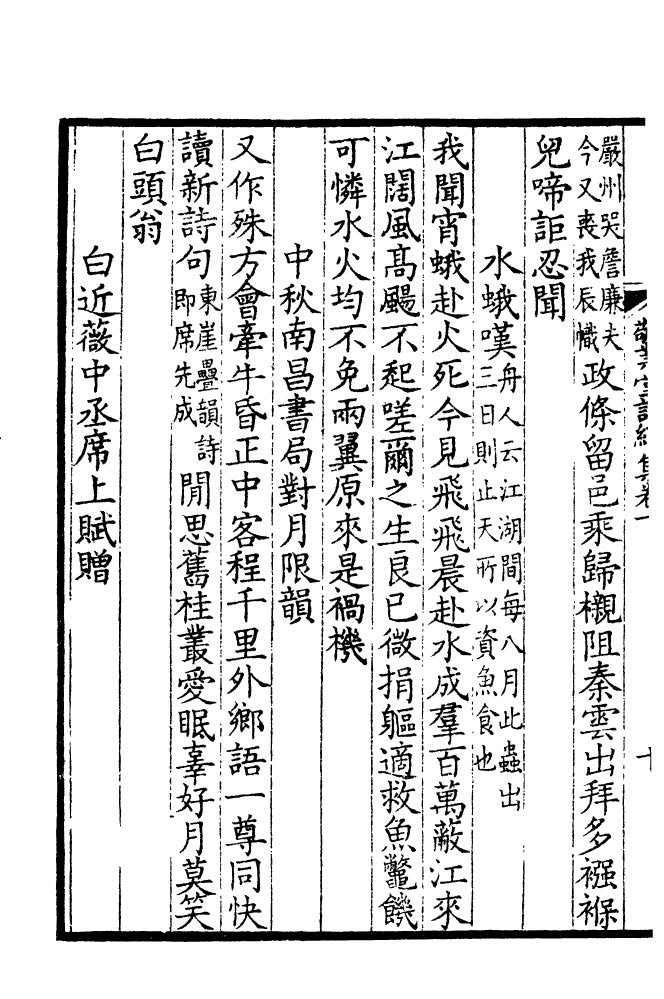 嚴州哭詹廉夫
今又喪我辰幟
政條留邑乘歸櫬阻秦雲出拜多襁褓
兒啼詎忍聞
水蛾嘆
舟人云江湖間每八月此蟲出
三日則止天所以資魚食也
我聞宵蛾赴火死今見飛飛晨赴水成羣百萬蔽江來
江闊風高颺不起嗟爾之生良已微捐軀適救魚鼈饑
可憐水火均不免兩翼原來是禍機
中秋南昌書局對月限韻
又作殊方會牽牛昏正中客程千里外鄉語一尊同快
讀新詩句
東崖疊韻詩
即席先成
閒思舊桂叢愛眠辜好月莫笑
白頭翁
白近薇中丞席上賦贈